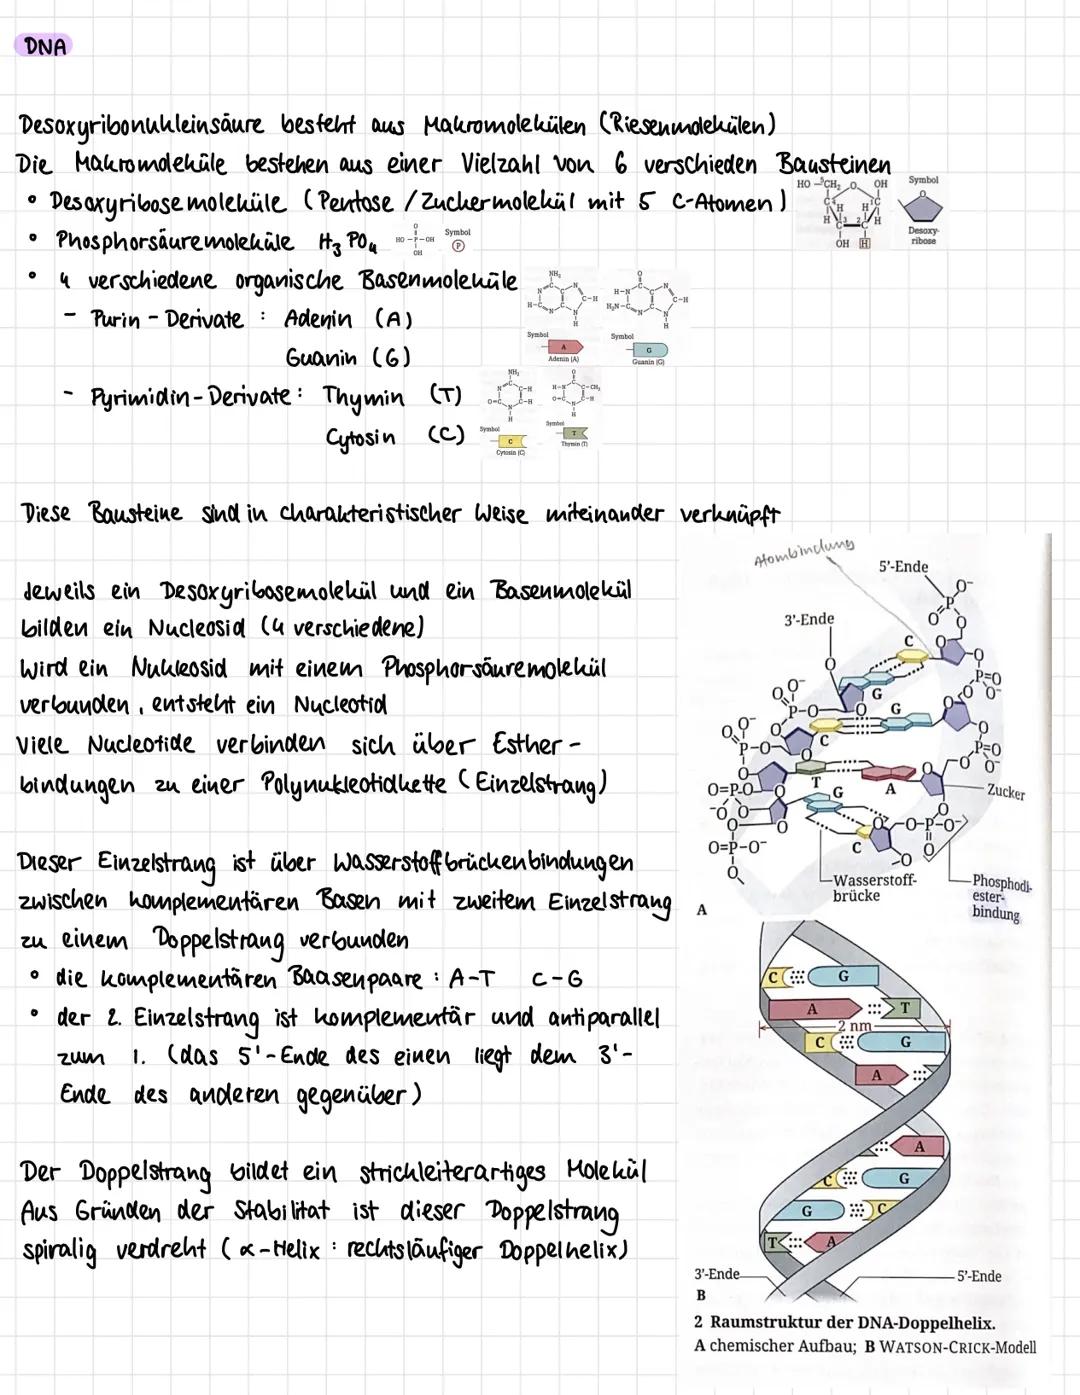 DNA
Desoxyribonukleinsäure besteht aus Makromolekülen (Riesenmolekülen)
Die Makromoleküle bestehen aus einer Vielzahl von 6 verschieden Bausteinen
• Desoxyribosemoleküle (Pentose / Zuckermolekül mit 5 C-Atomen)
HO ⁵CH₂ O OH
C⁴ H H ¹C
H ³ ² H
OH H
Symbol
Desoxy-
ribose
• Phosphorsäuremoleküle H₃PO₄
O
HO-P-OH
OH
Symbol
P
• 4 verschiedene organische Basenmoleküle
- Purin-Derivate : Adenin (A)
Guanin (G)
Symbol
A
Adenin (A)
Symbol
G
Guanin (G)
- Pyrimidin-Derivate : Thymin (T)
Cytosin (C)
Symbol
C
Cytosin (C)
Symbol
T
Thymin (T)
Diese Bausteine sind in charakteristischer Weise miteinander verknüpft
Jeweils ein Desoxyribosemolekül und ein Basenmolekül
bilden ein Nucleosid (4 verschiedene)
Wird ein Nukleosid mit einem Phosphorsäuremolekül
verbunden, entsteht ein Nucleotid
Viele Nucleotide verbinden sich über Esther-
bindungen zu einer Polynukleotidkette (Einzelstrang)
Dieser Einzelstrang ist über Wasserstoffbrückenbindungen
zwischen komplementären Basen mit zweitem Einzelstrang
zu einem Doppelstrang verbunden
• die komplementären Baasenpaare : A-T C-G
• der 2. Einzelstrang ist komplementär und antiparallel
zum 1. (das 5'-Ende des einen liegt dem 3'-
Ende des anderen gegenüber)
Der Doppelstrang bildet ein strickleiterartiges Molekül
Aus Gründen der Stabilität ist dieser Doppelstrang
spiralig verdreht (α-Helix : rechtsläufiger Doppelhelix)
Atombindung
5'-Ende
3'-Ende
C
G
G
C
T
A
G
C
Zucker
Wasserstoff-
brücke
Phosphodi-
ester-
bindung
A
C G
A T
2 nm
C G
A
A
C G
G C
T A
3'-Ende
5'-Ende
B
2 Raumstruktur der DNA-Doppelhelix.
A chemischer Aufbau; B WATSON-CRICK-Modell